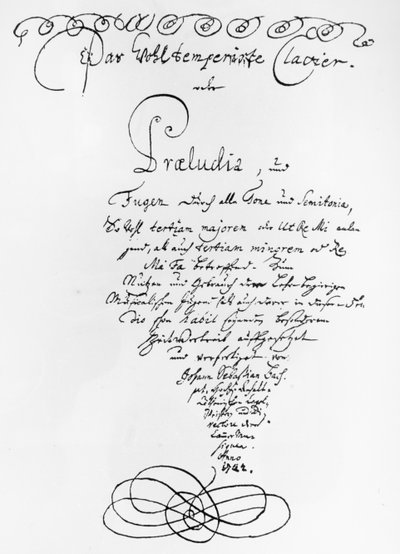 Das Wohltemperirte Clavier.
oder
Præludia, und
Fugen durch alle Tone und Semitonia,
So wohl tertiam majorem oder Ut Re Mi anlan-
gend, als auch tertiam minorem oder Re
Mi Fa betreffend. Zum
Nutzen und Gebrauch der Lehr-begierigen
Musicalischen Jugend, als auch derer in diesem stu-
dio schon habil seyenden besonderem
Zeitvertreib auffgesetzet
und verfertiget von
Johann Sebastian Bach.
p.t. Hochfürstlich
Anhalt-
Cöthenischen Capel-
Meistern und Di-
rectore derer
Cammer Mu-
siquen.
Anno
1722.